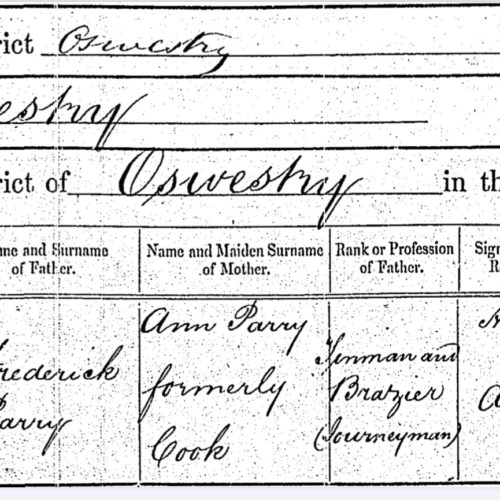 rict Oswestry
estry
rict of Oswestry in the
me and Surname of Father.
Name and Maiden Surname of Mother.
Rank or Profession of Father.
Sig
R
rederick
arry
Ann Parry
formerly
Cook
Tinman and
Brazier
(Journeyman)